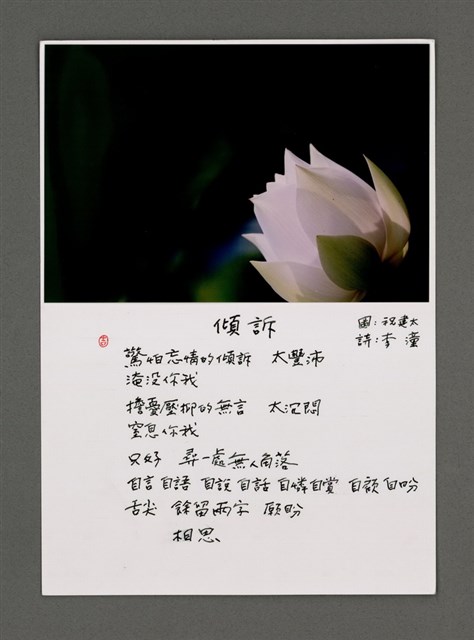 傾訴
圖：祝建太
詩：李潼
驚怕忘情的傾訴　太豐沛
淹没你我
擔憂壓抑的無言　太沉悶
窒息你我
只好　尋一處無人角落
自言自語　自說自話　自憐自賞　自顧自吟
舌尖　餘留兩字　願盼
相思